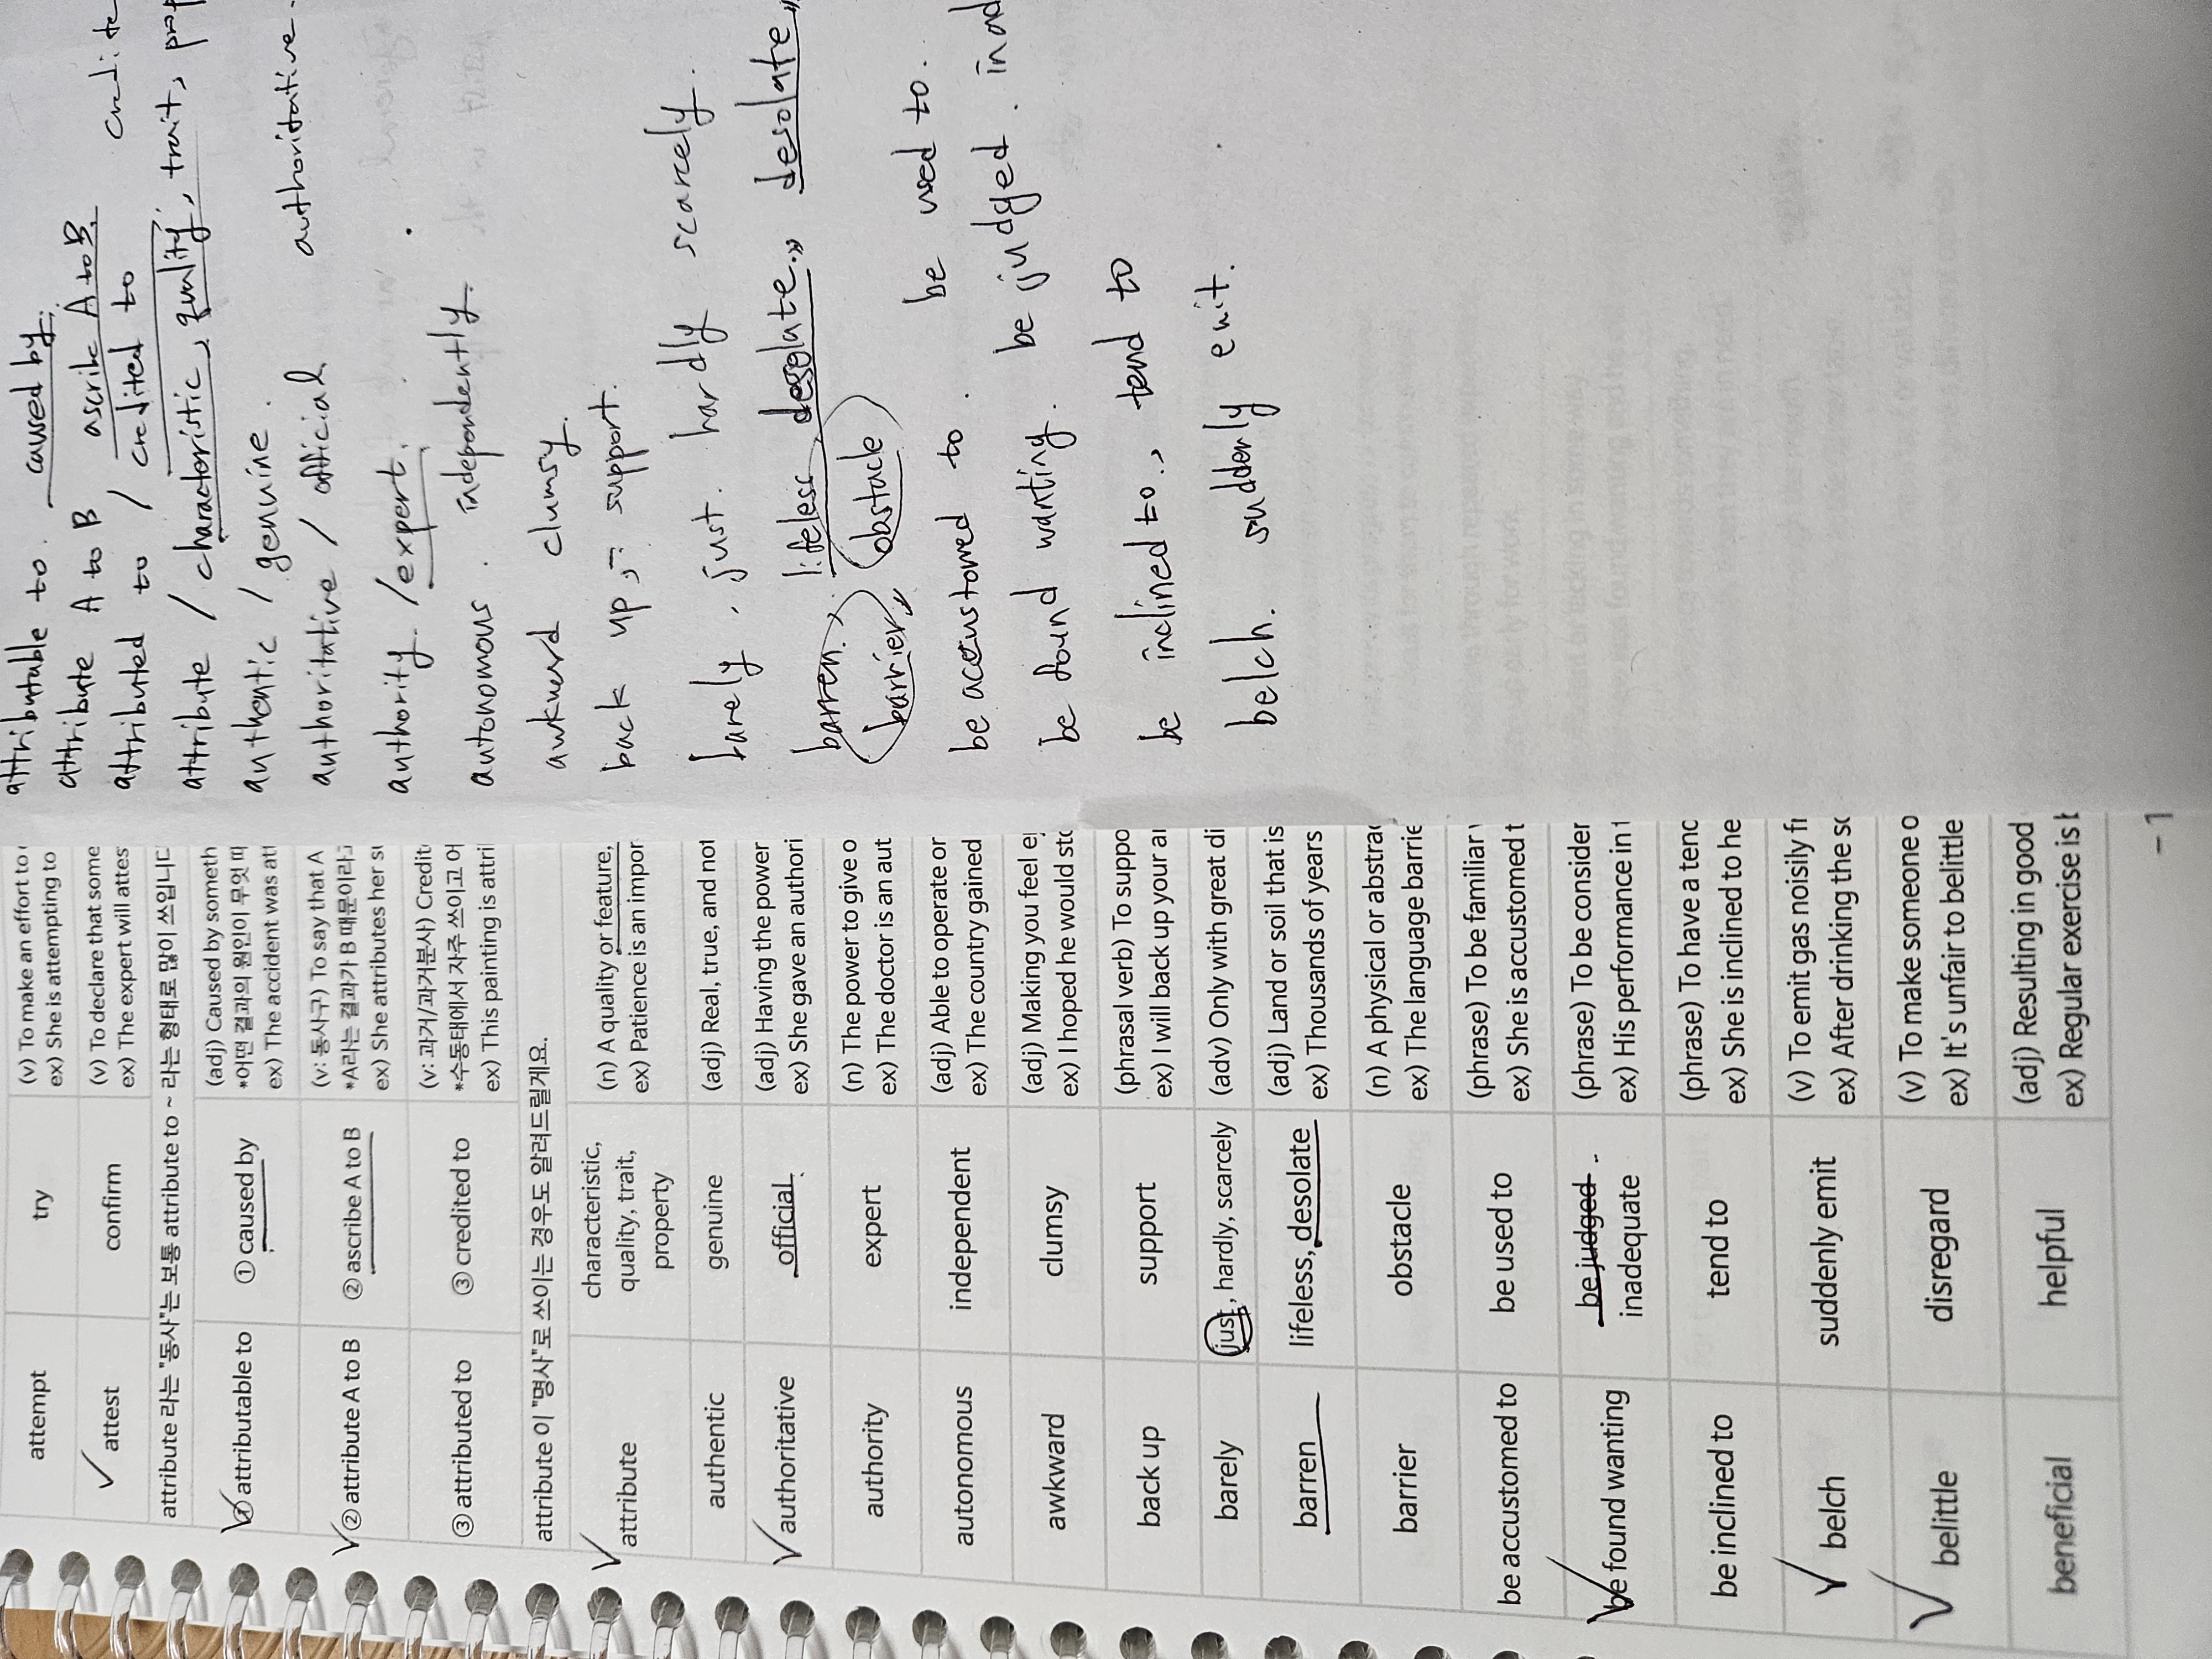 attempt
try
(v) To make an effort to
ex) She is attempting to
attest
confirm
(v) To declare that some
ex) The expert will attes
attribute 라는 "동사"는 보통 attribute to ~ 라는 형태로 많이 쓰입니다
① attributable to
① caused by
(adj) Caused by someth
*어떤 결과의 원인이 무엇 때
ex) The accident was att
② attribute A to B
② ascribe A to B
(v: 동사구) To say that A
*A라는 결과가 B 때문이라고
ex) She attributes her su
③ attributed to
③ credited to
(v: 과거/과거분사) Credit
*수동태에서 자주 쓰이고 어
ex) This painting is attri
attribute 이 "명사"로 쓰이는 경우도 알려드릴게요.
attribute
characteristic,
quality, trait,
property
(n) A quality or feature,
ex) Patience is an impor
authentic
genuine
(adj) Real, true, and not
authoritative
official
(adj) Having the power
ex) She gave an authori
authority
expert
(n) The power to give o
ex) The doctor is an aut
autonomous
independent
(adj) Able to operate or
ex) The country gained
awkward
clumsy
(adj) Making you feel e
ex) I hoped he would sto
back up
support
(phrasal verb) To suppo
ex) I will back up your a
barely
just, hardly, scarcely
(adv) Only with great di
barren
lifeless, desolate
(adj) Land or soil that is
ex) Thousands of years
barrier
obstacle
(n) A physical or abstra
ex) The language barrie
be accustomed to
be used to
(phrase) To be familiar
ex) She is accustomed t
be found wanting
be judged
inadequate
(phrase) To be consider
ex) His performance in
be inclined to
tend to
(phrase) To have a tend
ex) She is inclined to he
belch
suddenly emit
(v) To emit gas noisily fr
ex) After drinking the so
belittle
disregard
(v) To make someone o
ex) It's unfair to belittle
beneficial
helpful
(adj) Resulting in good
ex) Regular exercise is b
- 1
attributable to. caused by.
attribute A to B ascribe A to B
attributed to / credited to credite
attribute / characteristic, quality, trait, prop
authentic / genuine.
authoritative / official authoritative.
authority. / expert.
autonomous. independently.
awkward clumsy.
back up, support.
barely, just. hardly scarcely.
barren. lifeless desolate. desolate
barrier obstacle
be accustomed to. be used to.
be found wanting. be judged. inad
be inclined to. tend to
belch. suddenly emit.